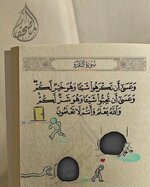 سورة البقرة
وَعَسَىٰ أَن تَكْرَهُوا شَيْئًا وَهُوَ خَيْرٌ لَّكُمْ
وَعَسَىٰ أَن تُحِبُّوا شَيْئًا وَهُوَ شَرٌّ لَّكُمْ
وَاللَّهُ يَعْلَمُ وَأَنتُمْ لَا تَعْلَمُونَ